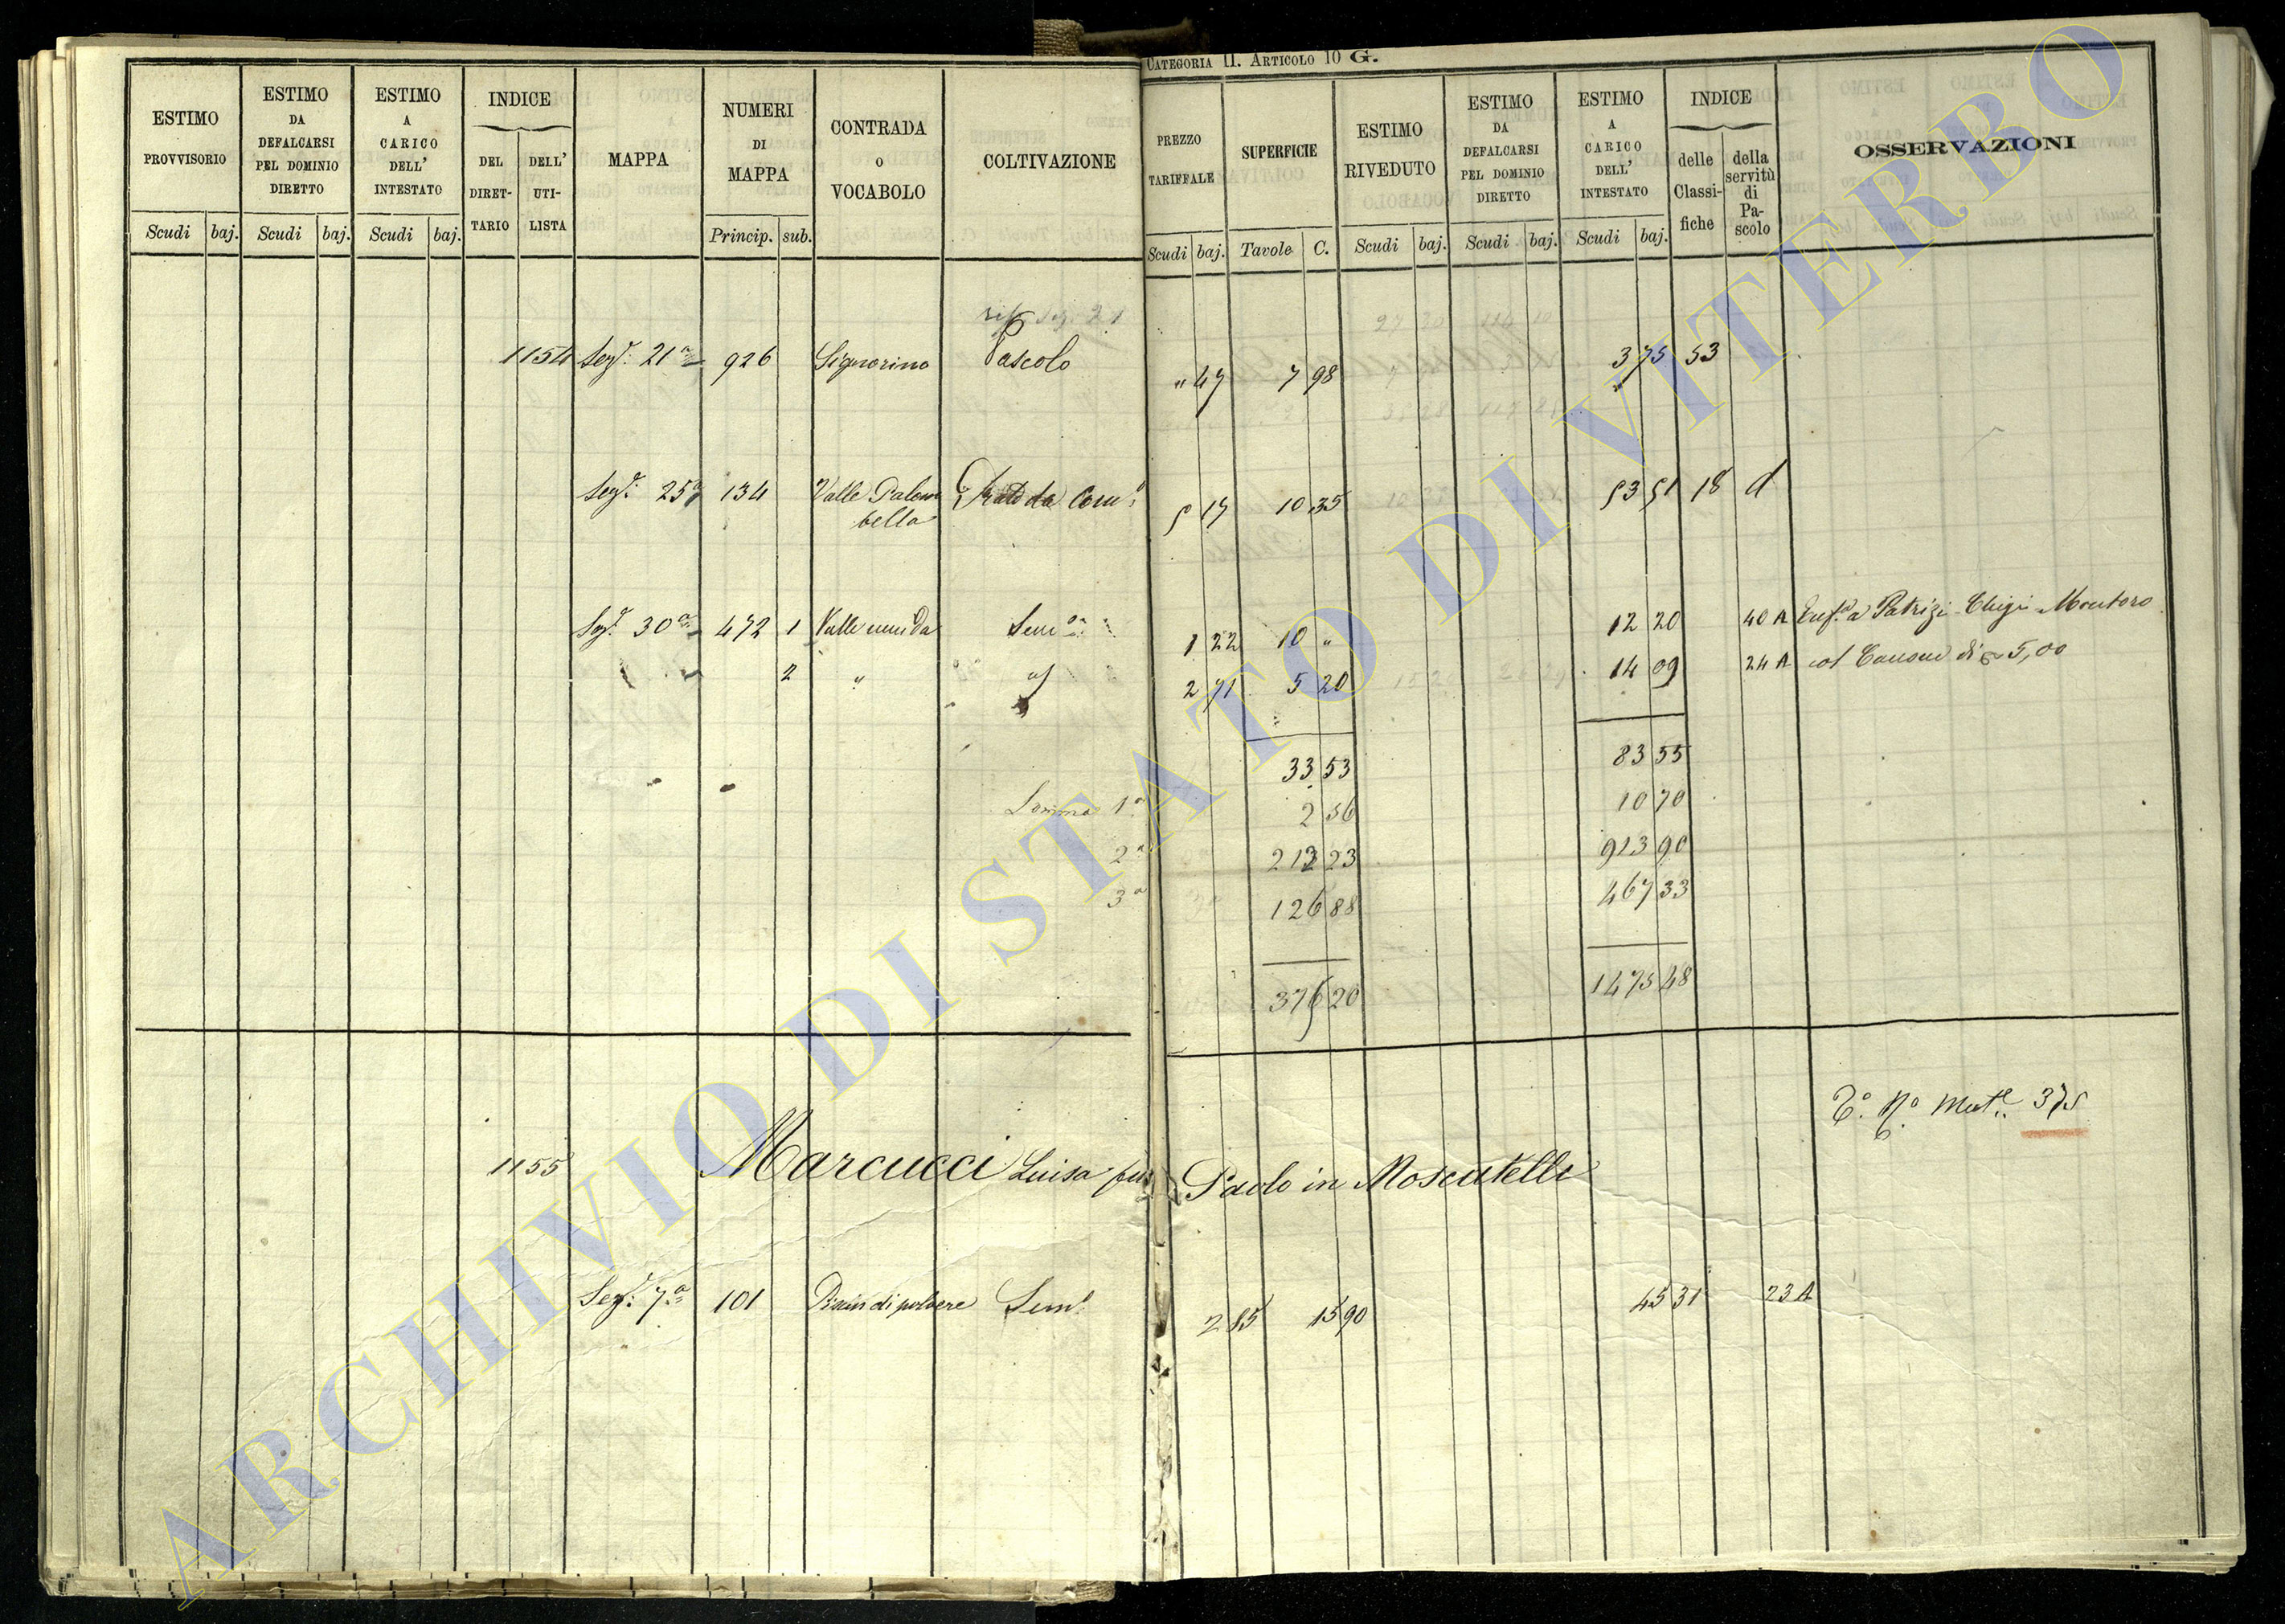 CATEGORIA II. ARTICOLO 10 G.
ESTIMO PROVVISORIO
Scudi baj.
ESTIMO DA DEFALCARSI PEL DOMINIO DIRETTO
Scudi baj.
ESTIMO A CARICO DELL' INTESTATO
Scudi baj.
INDICE
DEL DIRET-TARIO
DELL' UTI-LISTA
MAPPA
NUMERI DI MAPPA
Princip. sub.
CONTRADA O VOCABOLO
COLTIVAZIONE
PREZZO TARIFFALE
Scudi baj.
SUPERFICIE
Tavole C.
ESTIMO RIVEDUTO
Scudi baj.
ESTIMO DA DEFALCARSI PEL DOMINIO DIRETTO
Scudi baj.
ESTIMO A CARICO DELL' INTESTATO
Scudi baj.
INDICE
delle Classi-fiche
della servitù di Pa-scolo
OSSERVAZIONI
1154 Segd. 21a 926 Signorino Pascolo " 47 7 98 3 75 53
Segd. 25a 134 Valle Palom
bella 5 17 10 35 53 51 18 d
Segd. 30a 472 1 Valle nunda Semo 1 22 10 " 12 20 40 A Enfa a Patrizi Chigi Montoro
2 " 2 71 5 20 14 09 24 A col Canone di 5,00
33 53 83 55
Somma 1a 2 56 10 70
2a 213 23 913 90
3a 126 88 467 33
376 20 1475 48
To. No. Mute. 375
1155 Marcucci Luisa fu Paolo in Moscatelli
Segd. 7a 101 Piscin di polvere Semo 2 85 15 90 45 31 23 A
ARCHIVIO DI STATO DI VITERBO